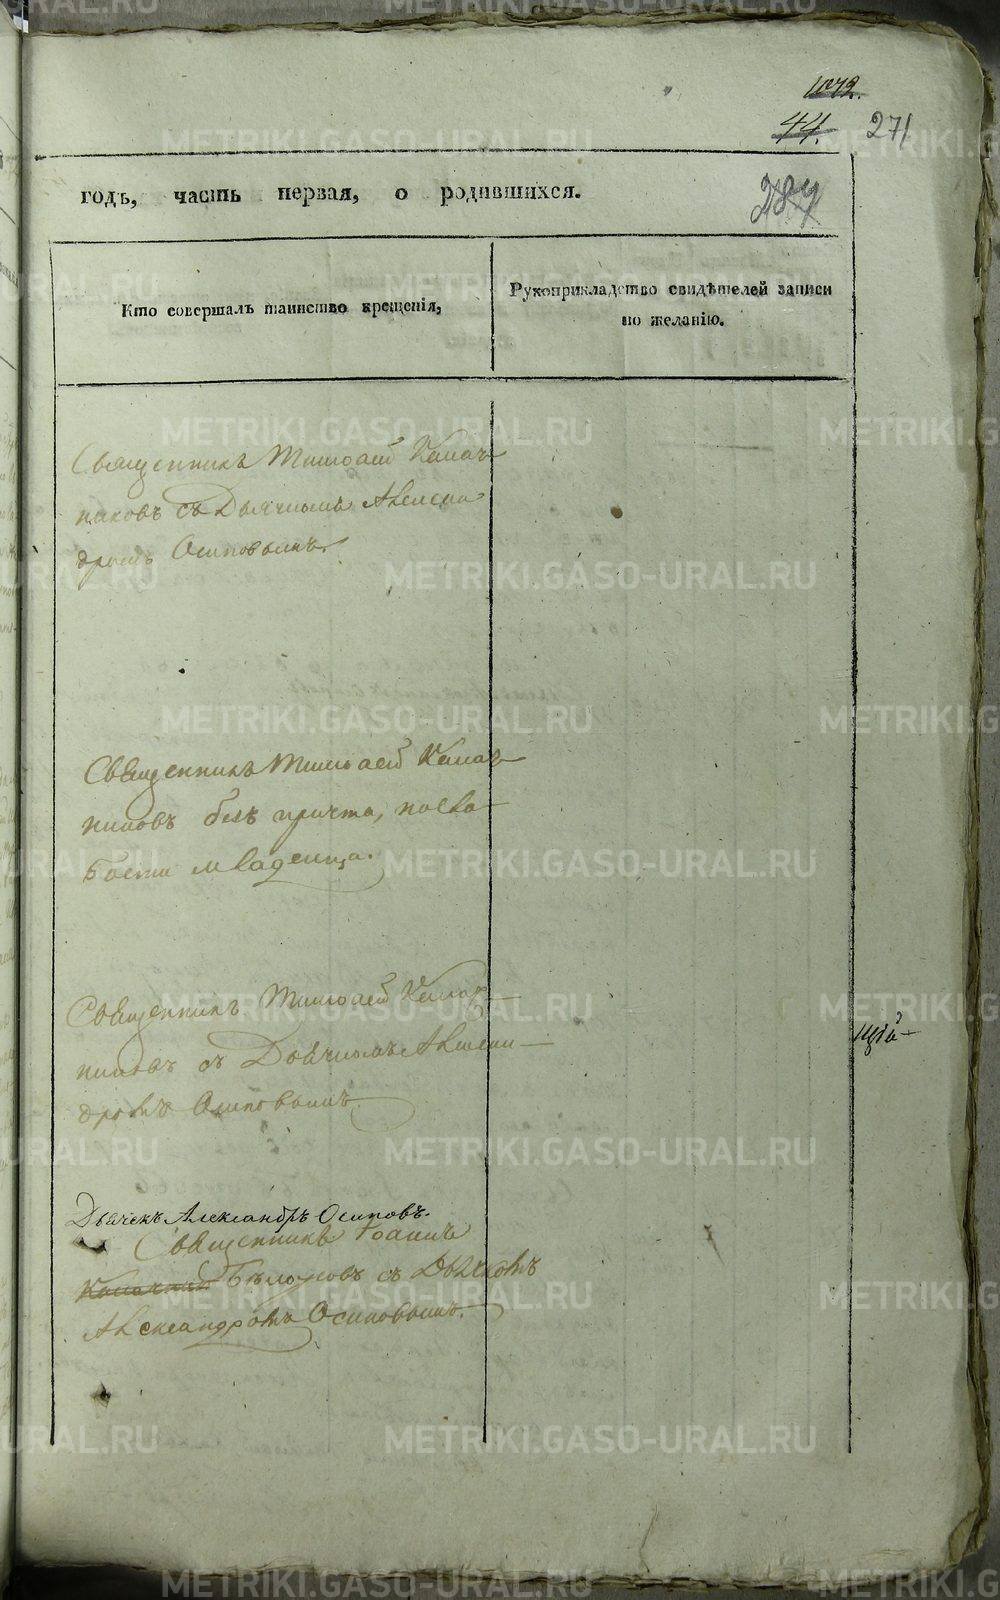 1072.
44. 271
годъ, часть первая, о родившихся.
287
Кто совершалъ таинство крещенія,
Рукоприкладство свидѣтелей записи
по желанію.
Священникъ Тимоѳей Калач
никовъ съ Дьячкомъ Алексан
дромъ Осиповымъ.
Священникъ Тимоѳей Калач
никовъ безъ причта, по сла
бости младенца.
Священникъ Тимоѳей Калач
никовъ съ Дьячкомъ Алексан
дромъ Осиповымъ
щій
Дьячекъ Александръ Осиповъ.
Священникъ Іоаннъ
съ Дьячкомъ
Александромъ Осиповымъ.
METRIKI.GASO-URAL.RU